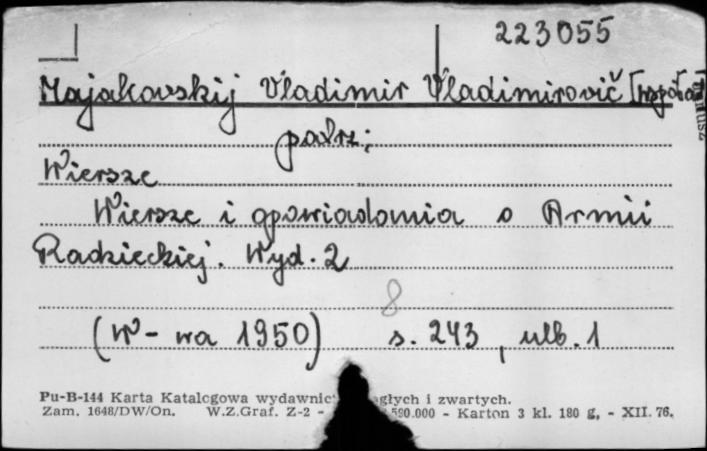 223055
Majakovskij Vladimir Vladimirovič [współa
patrz:
Wiersze
Wiersze i opowiadania o Armii
Radzieckiej. Wyd. 2
8
(W-wa 1950) s. 243, nlb. 1
Pu-B-144 Karta Katalogowa wydawnic głych i zwartych.
Zam. 1648/DW/On. W.Z.Graf. Z-2 - 590.000 - Karton 3 kl. 180 g, - XII. 76.